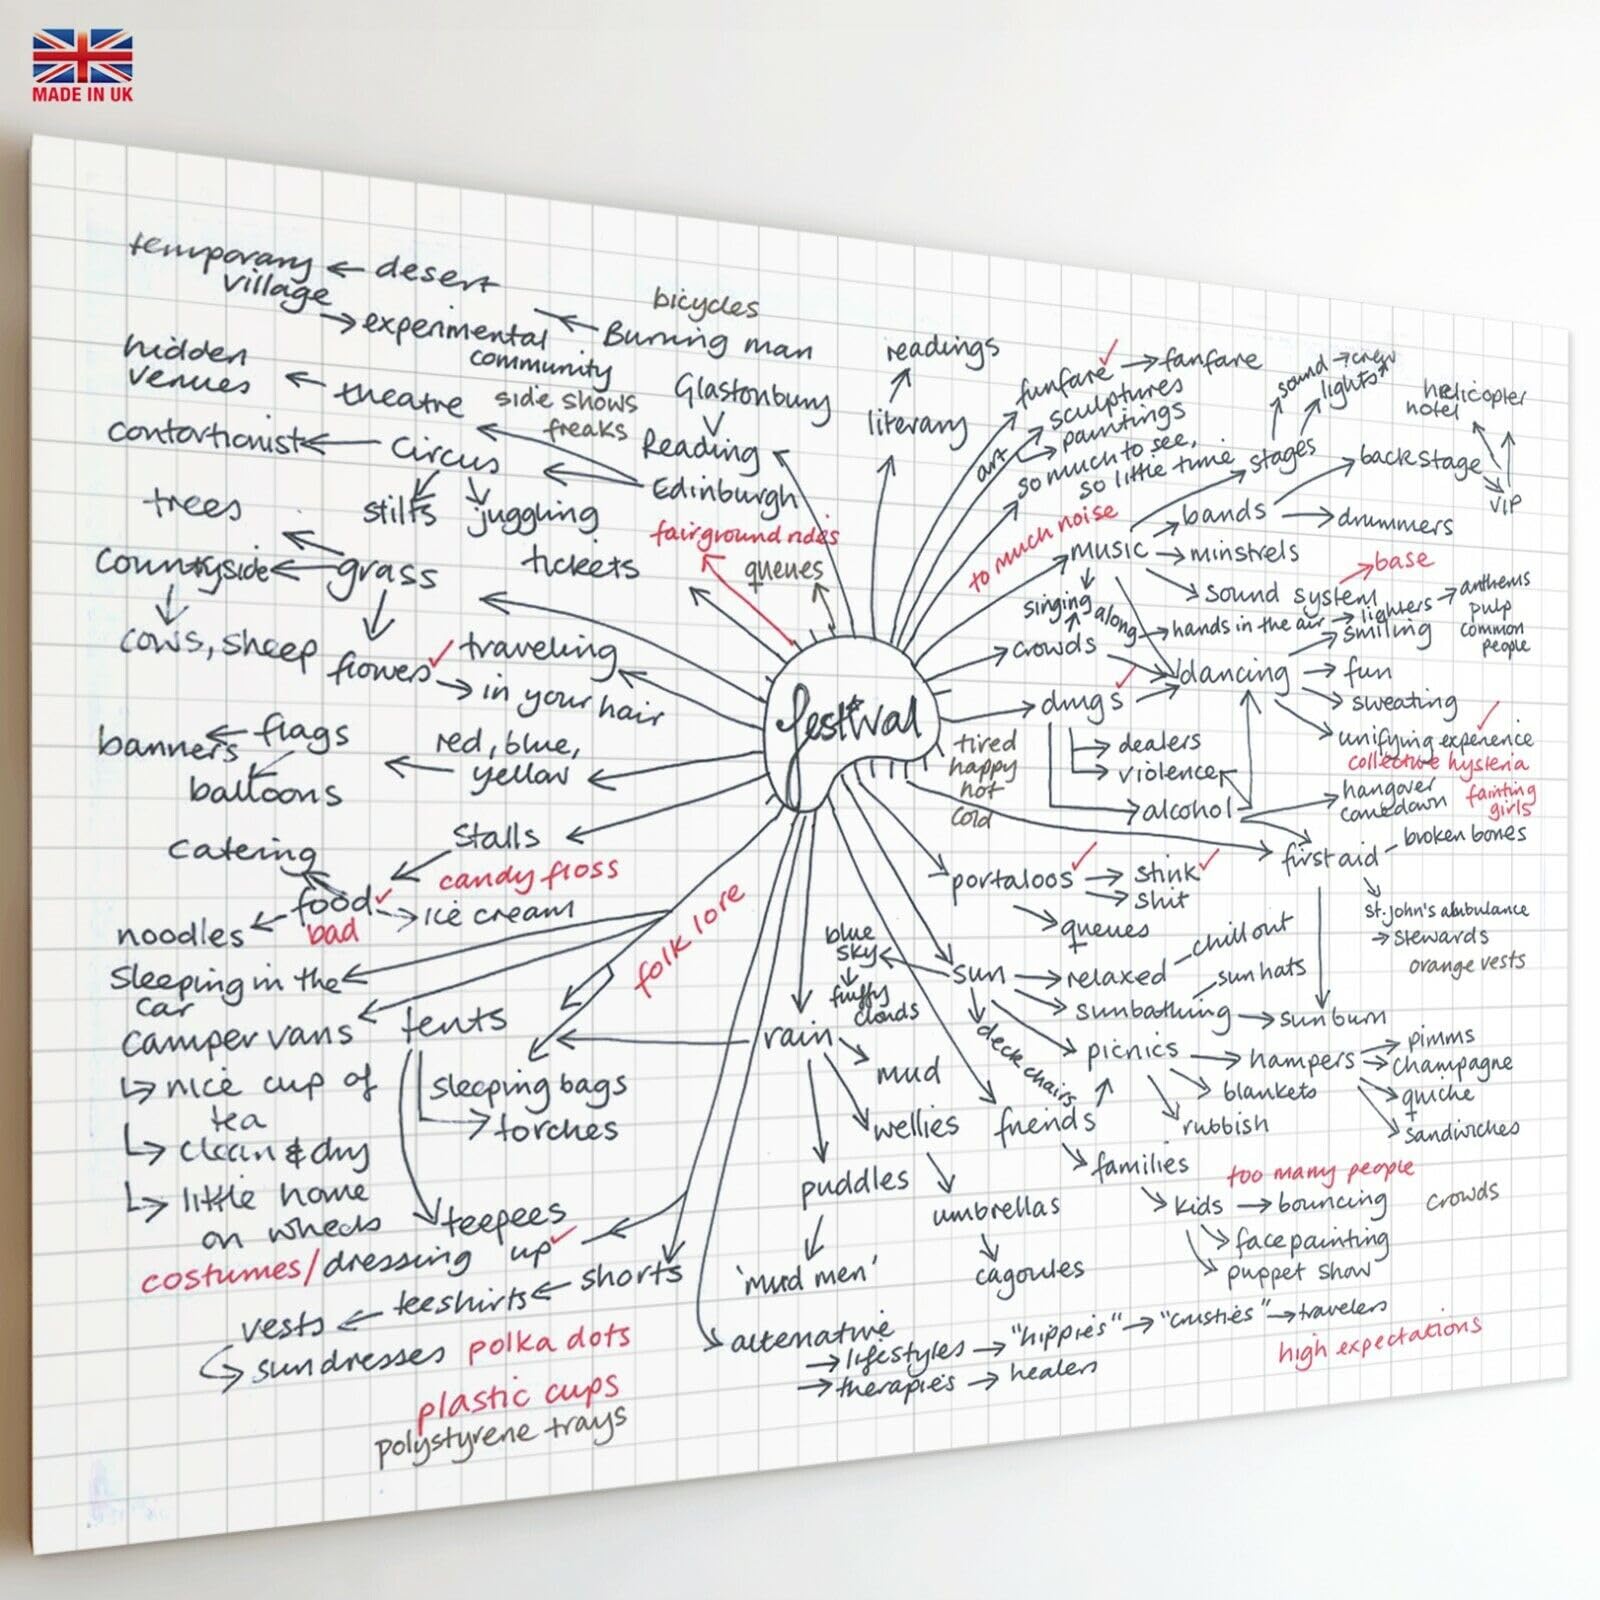 MADE IN UK
temporary
village
desert
experimental
community
Burning man
bicycles
hidden
venues
theatre
side shows
freaks
Glastonbury
Reading
contortionist
circus
Edinburgh
stilts
juggling
trees
countryside
grass
tickets
fairground rides
queues
cows, sheep
flower
traveling
in your hair
banners
flags
balloons
red, blue,
yellow
catering
stalls
candy floss
food
bad
noodles
ice cream
folk lore
sleeping in the
car
camper vans
nice cup of
tea
clean & dry
little home
on wheels
tents
sleeping bags
torches
teepees
costumes/dressing up
shorts
teeshirts
vests
sundresses
polka dots
plastic cups
polystyrene trays
festival
readings
literary
funfare
fanfare
art
sculptures
paintings
so much to see,
so little time
to much noise
music
stages
sound
crew
lights
helicopter
hotel
backstage
VIP
bands
drummers
minstrels
sound system
base
singing along
crowds
hands in the air
lighters
anthems
pulp
common
people
smiling
dancing
fun
sweating
unifying experience
collective hysteria
fainting
girls
drugs
dealers
violence
alcohol
hangover
comedown
tired
happy
hot
cold
first aid
broken bones
st. john's abulance
stewards
orange vests
portaloos
stink
shit
queues
blue
sky
fluffy
clouds
sun
relaxed
chill out
sunbathing
sun hats
sunburn
deck chairs
picnics
hampers
pimms
champagne
quiche
+
sandwiches
blankets
rubbish
rain
mud
wellies
puddles
'mud men'
umbrellas
cagoules
friends
families
too many people
kids
bouncing
crowds
facepainting
puppet show
alternative
lifestyles
"hippies"
"crusties"
travelers
therapies
healers
high expectations